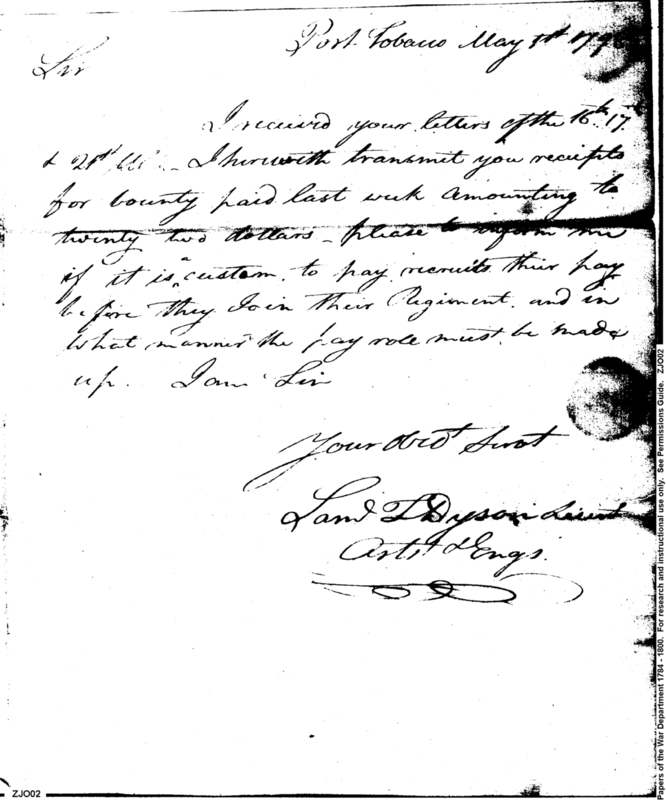 Port Tobacco May 1st
Sir
I received your letters of the 16th. 17th
& 21st Ult. I herewith transmit you receipts
for bounty paid last week amounting to
twenty two dollars - please to inform me
if it is a custom to pay recruits their pay
before they Join their Regiment. and in
what manner the pay role must be made
up. I am Sir
Your Obdt Servt
Saml T Dyson Lieut
Arts. & Engs.
Papers of the War Department 1784 - 1800. For research and instructional use only. See Permissions Guide. ZJO02
ZJO02